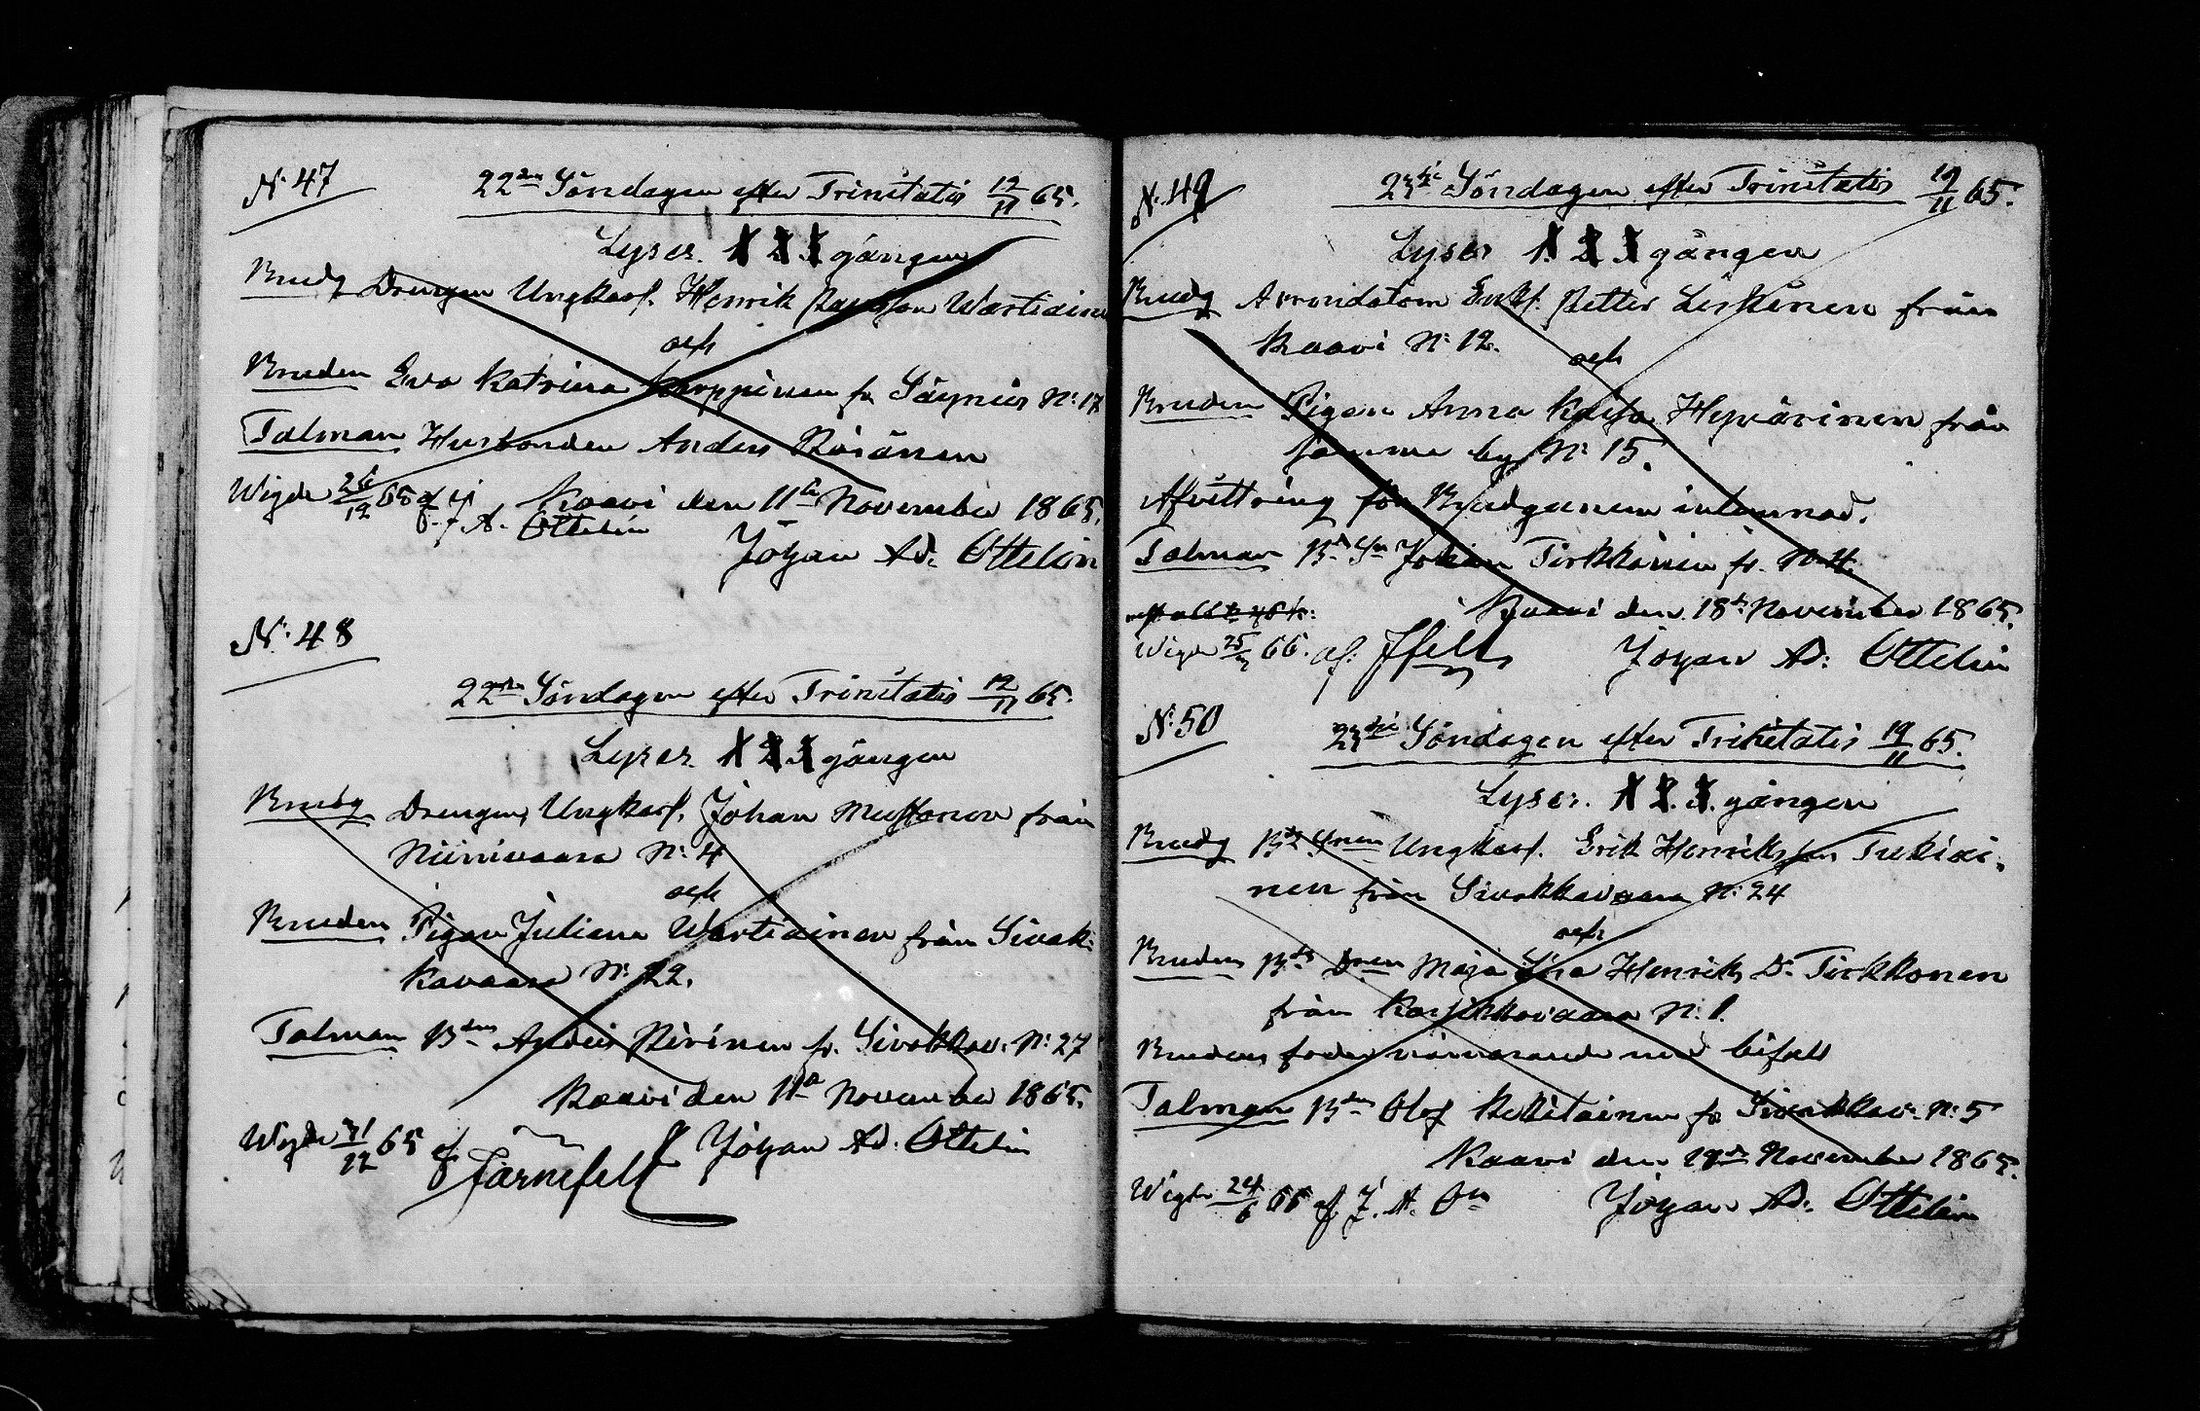 N: 47
22dra Söndagen efter Trinitatis 12/11 65.
Lyses. 1 2 3 gången
Brudg Drengen Ungkarl. Henrik Paulsson Wartiainen
och
Bruden Eva Katrina Karppinen fr Säyneis N: 17
Talman Husbonden Anders Räsänen
Kaavi den 11te November 1865.
Wigde 26/12 65 af J. A. Ottelin
Johan Ad: Ottelin
N: 48
22dra Söndagen efter Trinitatis 12/11 65.
Lyses. 1 2 3 gången
Brudg Drengen, Ungkarl. Johan Mustonen från
Niinivaara N: 4
och
Bruden Pigan Juliana Wartiainen från Sivak-
kavaara N: 22.
Talman Bden Anders Pirinen fr. Sivakkav: N: 27
Kaavi den 11te November 1865.
Wigde 31/12 65 af Järnefelt
Johan Ad. Ottelin
N: 49
23dje Söndagen efter Trinitatis 19/11 65.
Lyses 1. 2 3 gången
Brudg Arrendatorn Enkl. Petter Leskinen från
Kaavi N: 12.
och
Bruden Pigan Anna Kaisa Hyvärinen från
samma by N: 15.
Afvittring för Brudgummen inlemnad.
Talman Bd Sn Johan Tirkkonen fr. N: 4.
Kaavi den 18de November 1865.
Wigde 25/ 66. af: Jfelt
Johan Ad: Ottelin
N: 50
23dje Söndagen efter Trinitatis 19/11 65.
Lyses. 1 2. 3. gången
Brudg Bde Snen Ungkarl. Erik Henriksson Tukiai-
nen från Sivakkavaara N: 24
och
Bruden Bds Dren Maja Lisa Henriks Dr Tirkkonen
från Kortikkavaara N: 1.
Brudens fader närvarande med bifall
Talman Bden Olof Kettitäinen fr Sivakkav: N: 5
Kaavi den 19de November 1865.
Wigde 24/6 66 af J. A. On
Johan Ad: Ottelin